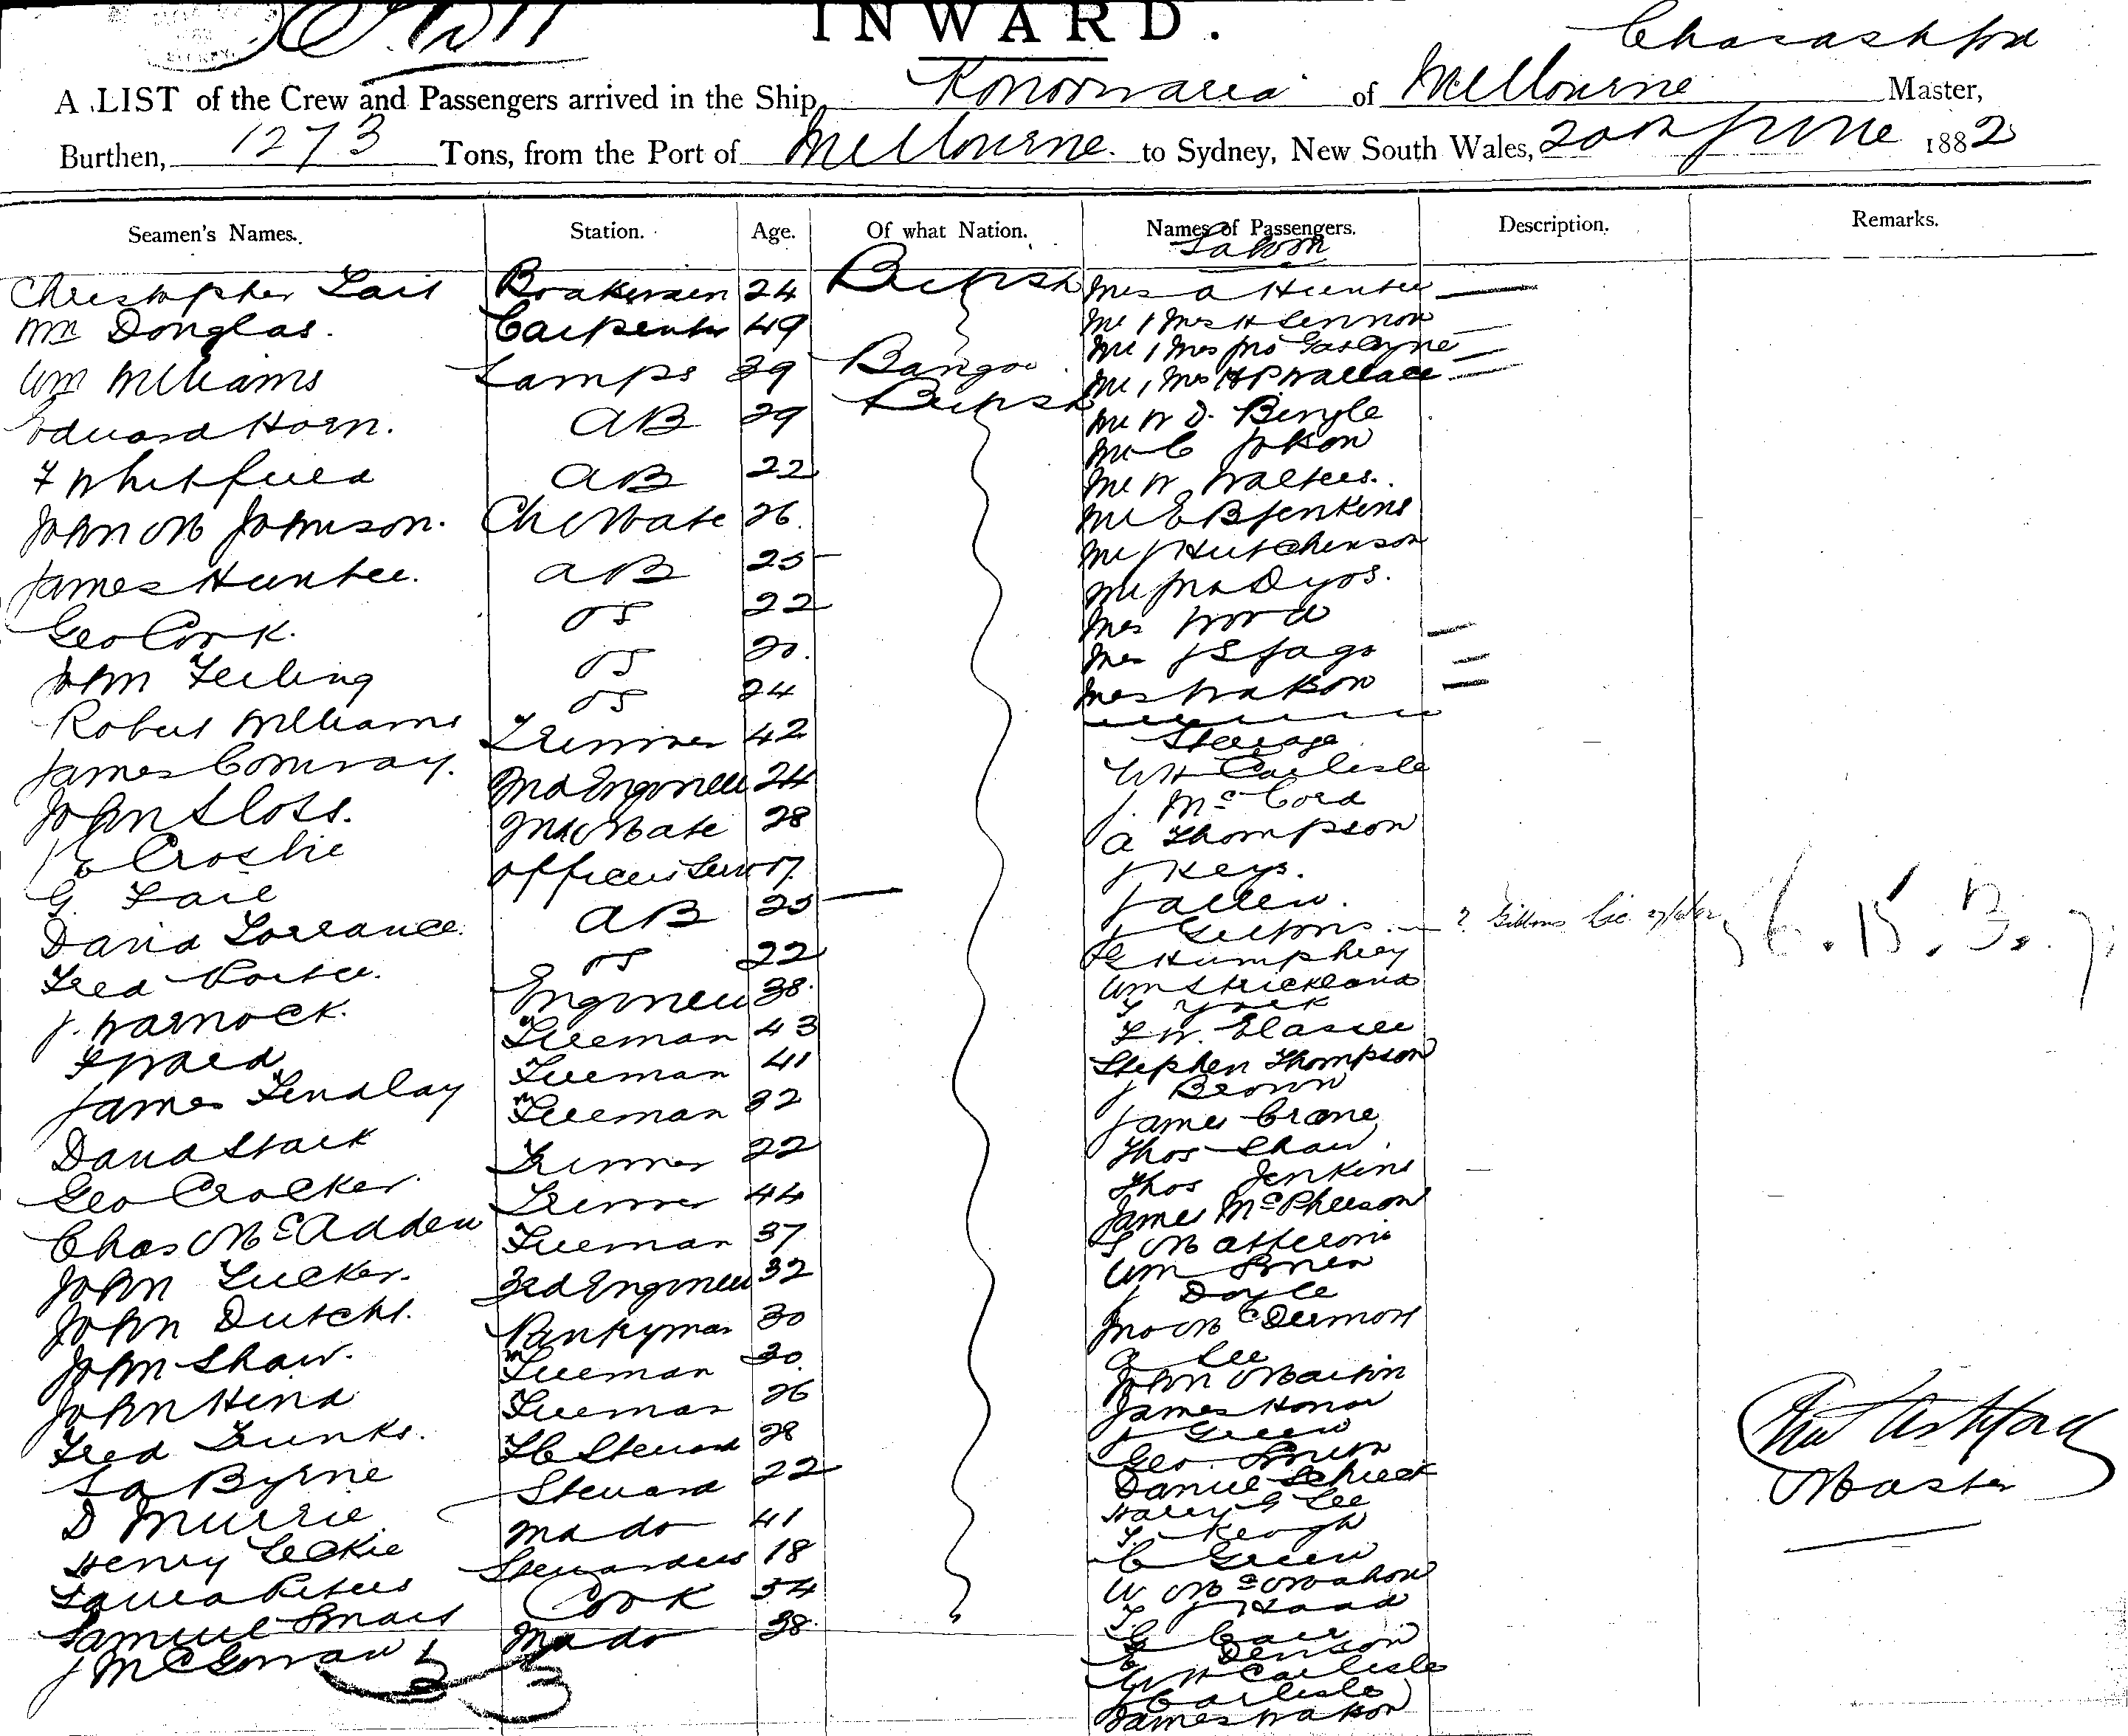 INWARD.
Chas Ashford
A LIST of the Crew and Passengers arrived in the Ship, Konoowarra of Melbourne Master,
Burthen, 1273 Tons, from the Port of Melbourne to Sydney, New South Wales, 20th June 1882
Seamen's Names. Station. Age. Of what Nation. Names of Passengers. Description. Remarks.
Saloon
Christopher Lait 24 British Mrs A Hunter
Wm Douglas. Carpenter 49 Mr & Mrs H Lennon
Mr & Mrs Jno Gascoyne
Wm Williams Lamps 39 Bangor Mr & Mrs H P Wallace
Edward Horn. AB 29 British Mr W D. Bingle
Mr C
F Whitfield AB 22 Mr W Walters.
John M Johnson. Ch Mate 26. Mr E B Jenkins
James Hunter. AB 25 Mr J Hutchinson
Mr Jno Dyos.
Geo Cook. OS 22 Mrs Wood
John OS 20. Mrs J S Jago
Robert Williams OS 24 Mrs Watson
James Conway. Trimmer 42 Steerage
John Sloss. 2nd Engineer 24 W H Carlisle
J. McCord
J E Crosbie 2nd Mate 28 A Thompson
G. Officers Servt 17. J Keys.
David Torrance. AB 25 J Allen.
J ? Gibbons
Fred Porter. OS 22 Humphrey
J. Warnock. Engineer 38. Wm Strickland
York
F Ward Fireman 43 F W.
James Findlay Fireman 41 Stephen Thompson
J Brown
David Stark Fireman 32 James Crane
Geo Crocker. Trimmer 22 Thos Shaw.
Thos Jenkins
Chas McAdden Trimmer 44 James McPherson
John Tucker. Fireman 37 S
John 3rd Engineer 32 Wm
J Doyle
John Shaw. Pantryman 30 Jno McDermott
John Hind Fireman 30 A Lee
John Martin
Fred Trunks. Fireman 26 James Honor
J Green
Byrne F C Steward 28 Geo
D Murrie Steward 22 Daniel
Harry G Lee
Henry Leckie 2nd do 41 Keogh
Laura Peters Stewardess 18 C Green
W McMahon
Samuel Smart Cook 34
J McGowan 2nd do 38. G
Denison
W H Carlisle
J Carlisle
James Watson
Chas Ashford
Master